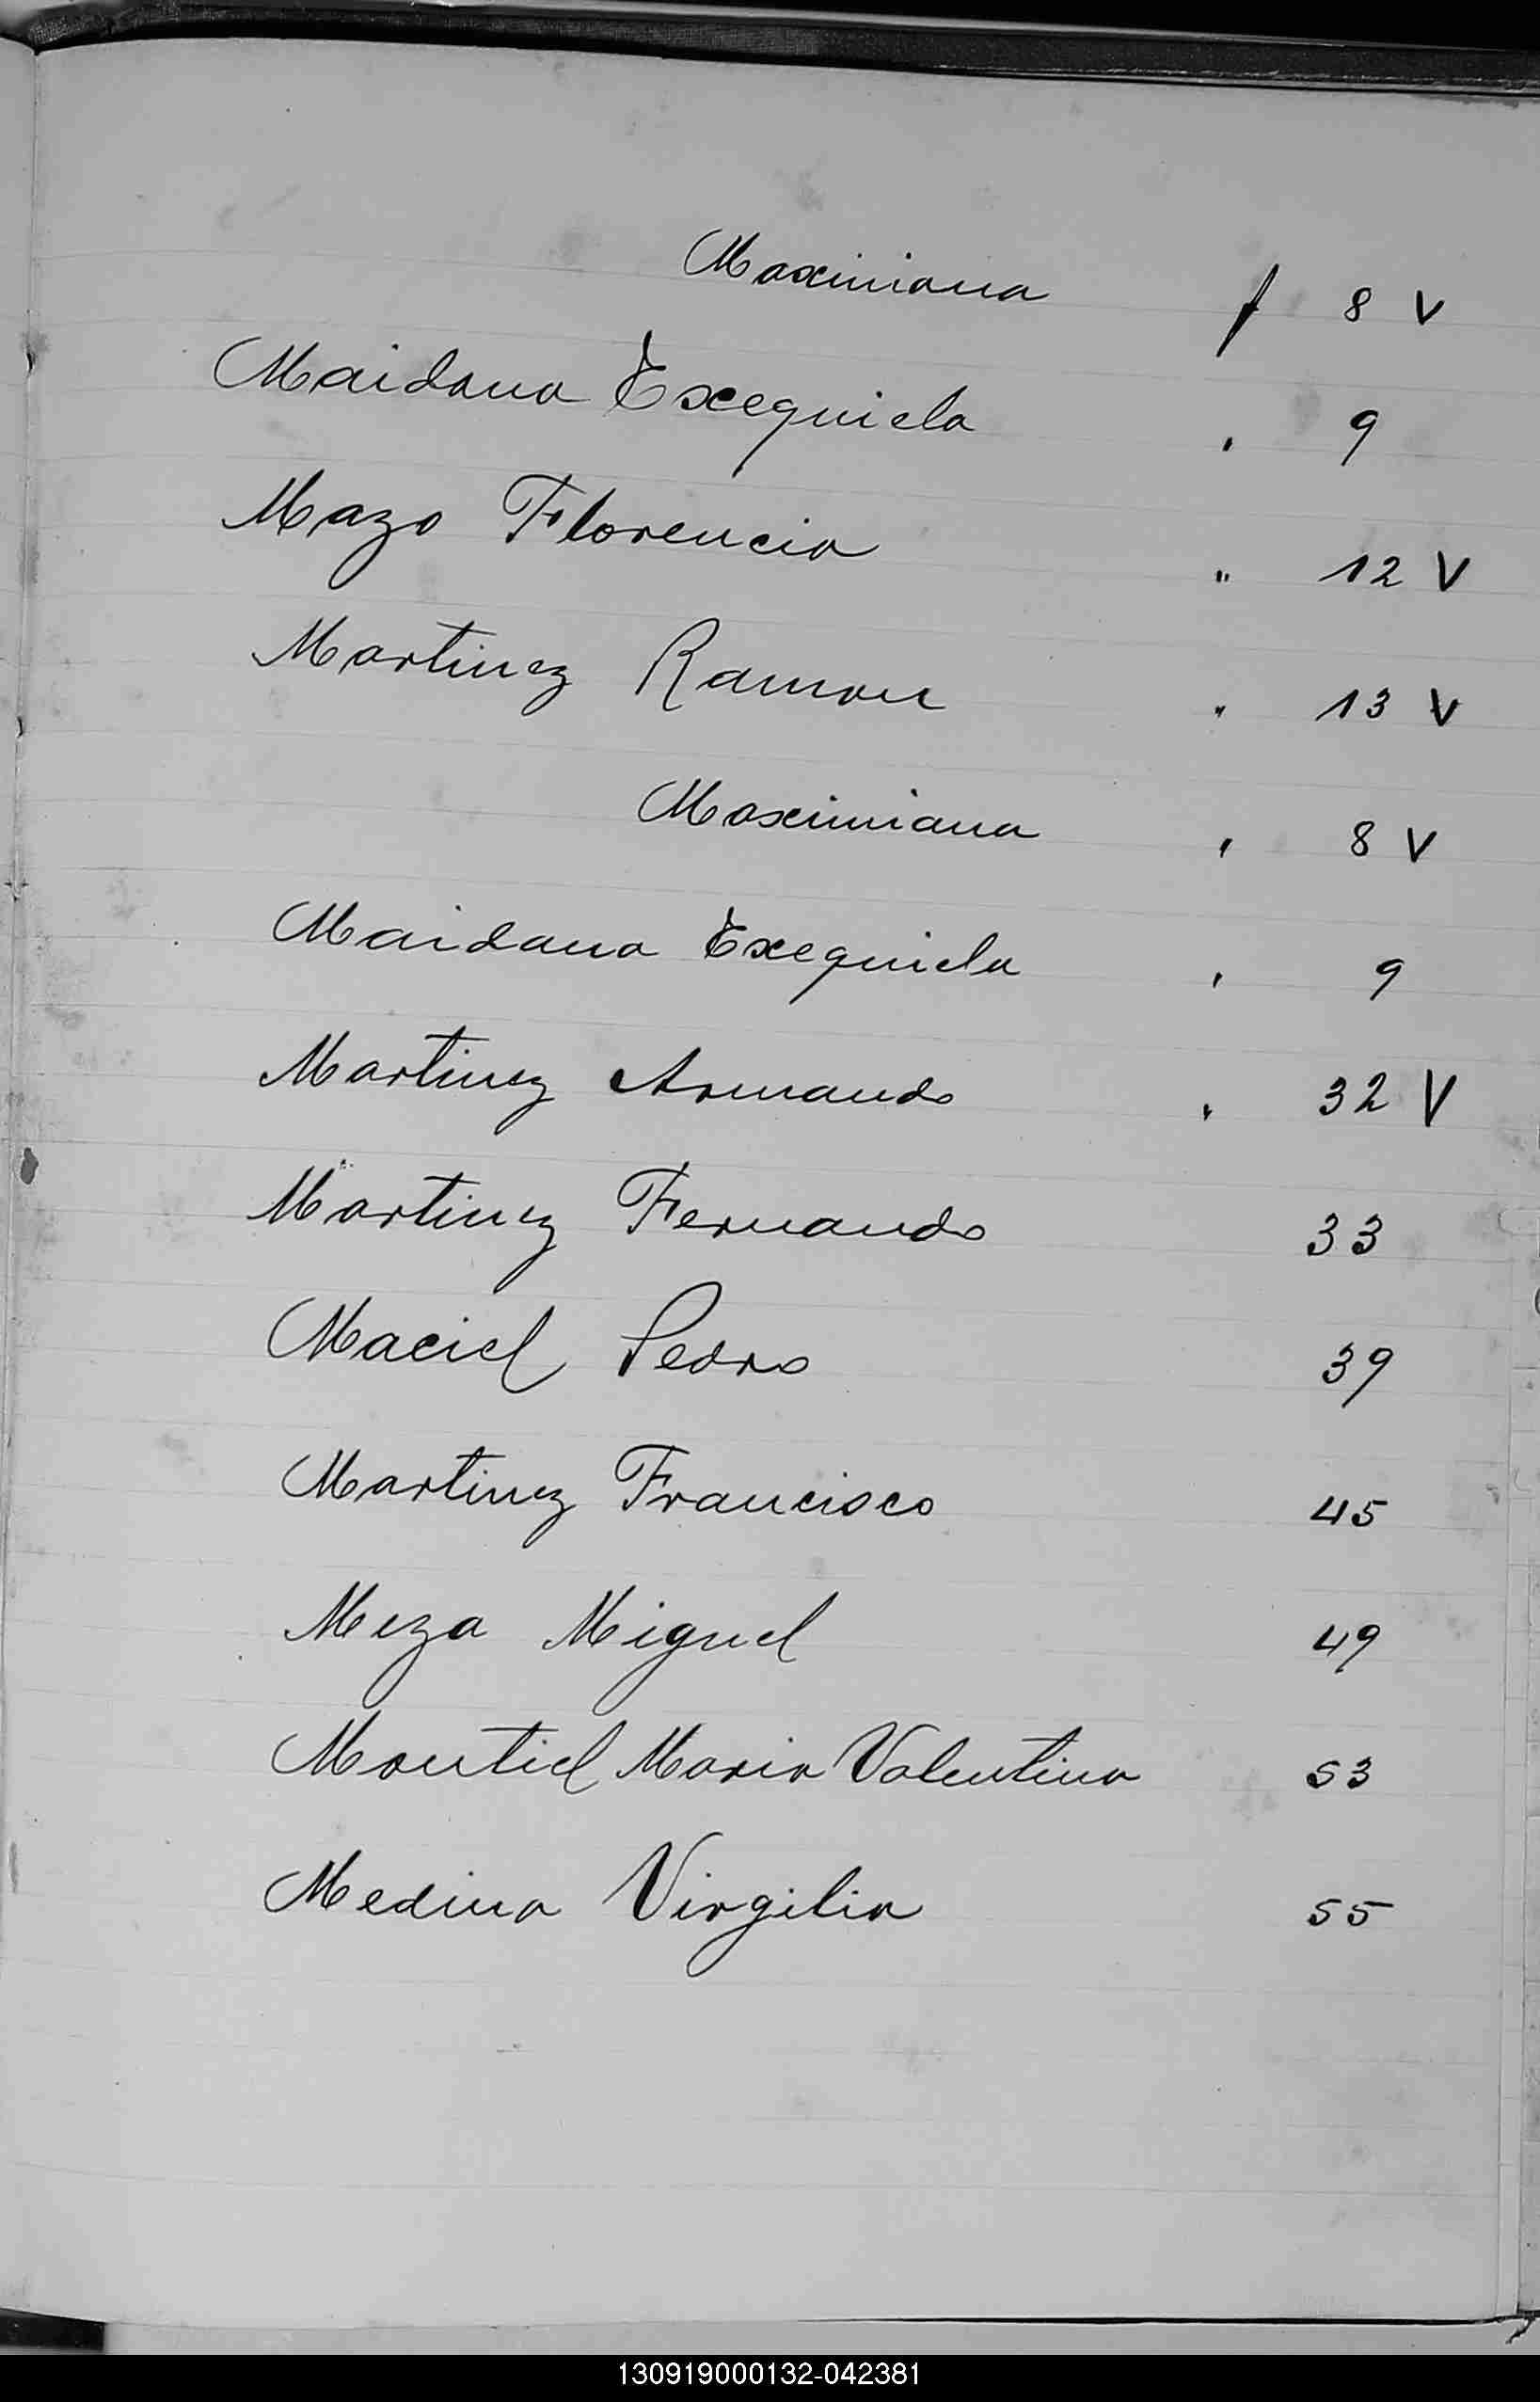 Maximiana f 8 V
Maidana Exequiela " 9
Mazo Florencia " 12 V
Martinez Ramon " 13 V
Maximiana " 8 V
Maidana Exequiela " 9
Martinez Armando " 32 V
Martinez Fernando 33
Maciel Pedro 39
Martinez Francisco 45
Meza Miguel 49
Montiel Maria Valentina 53
Medina Virgilia 55
130919000132-042381